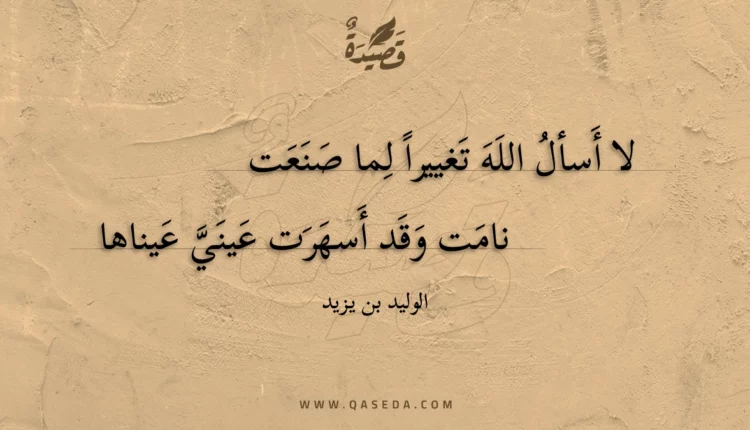 قَصِيْدَةٌ
لا أَسألُ اللَهَ تَغييراً لِما صَنَعَت
نامَت وَقَد أَسهَرَت عَينَيَّ عَيناها
الوليد بن يزيد
WWW.QASEDA.COM